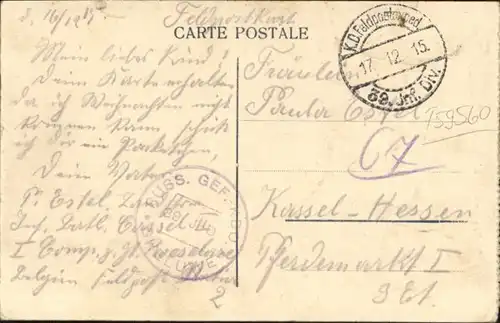 d. 16/12 15
Feldpostkarte
CARTE POSTALE
Mein liebes Kind!
Deine Karte erhalten
da ich Weihnachten nicht
kommen kann, schick
ich dir ein Packetchen,
Dein Vater
Estel,
Inf. Batl. Cassel
I Comp.
Belgien Feldpost
2
K.D. Feldpostexped.
17 12 15.
39. Inf. Div.
Fräulein
Paula Estel
159560
67
Kassel-Hessen
Pferdemarkt I
3 Et.